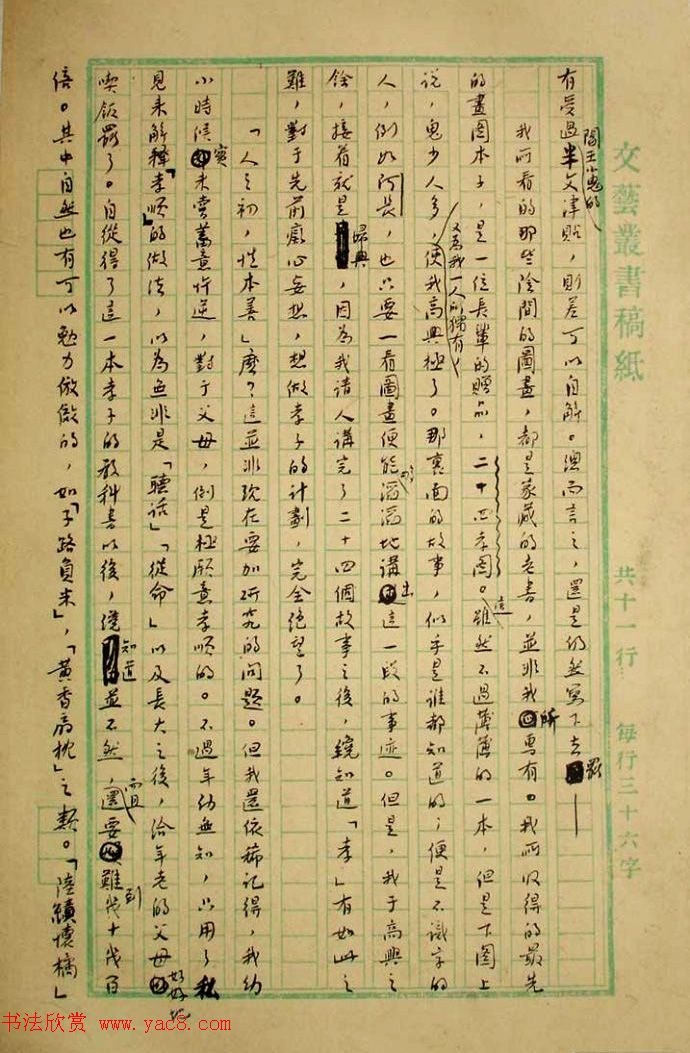 文藝叢書稿紙 共十一行 每行三十六字
有受過閻王小鬼的半文津貼，則差可以自解。總而言之，還是仍然寫下去罷——
我所看的那些陰間的圖畫，都是家藏的老書，並非我所專有。我所收得的最先
的畫圖本子，是一位長輩的贈品，二十四孝圖。這雖然不過薄薄的一本，但是下圖上
說，鬼少人多，又為我一人所獨有，使我高興極了。那裏面的故事，似乎是誰都知道的；便是不識字的
人，例如阿長，也只要一看圖畫便能夠滔滔地講出這一段的事迹。但是，我于高興之
餘，接着就是掃興，因為我請人講完了二十四個故事之後，纔知道「孝」有如此之
難，對于先前癡心妄想，想做孝子的計劃，完全絕望了。
「人之初，性本善」麼？這並非現在要加研究的問題。但我還依稀記得，我幼
小時候實未嘗蓄意忤逆，對于父母，倒是極願意孝順的。不過年幼無知，只用了私
見來解釋「孝順」的做法，以為無非是「聽話」「從命」以及長大之後，給年老的父母好好地
喫飯罷了。自從得了這一本孝子的教科書以後，纔知道並不然，而且還要難到幾十幾百
倍。其中自然也有可以勉力倣傚的，如「子路負米」，「黃香扇枕」之類。「陸績懷橘」
书法欣赏 www.yac8.com